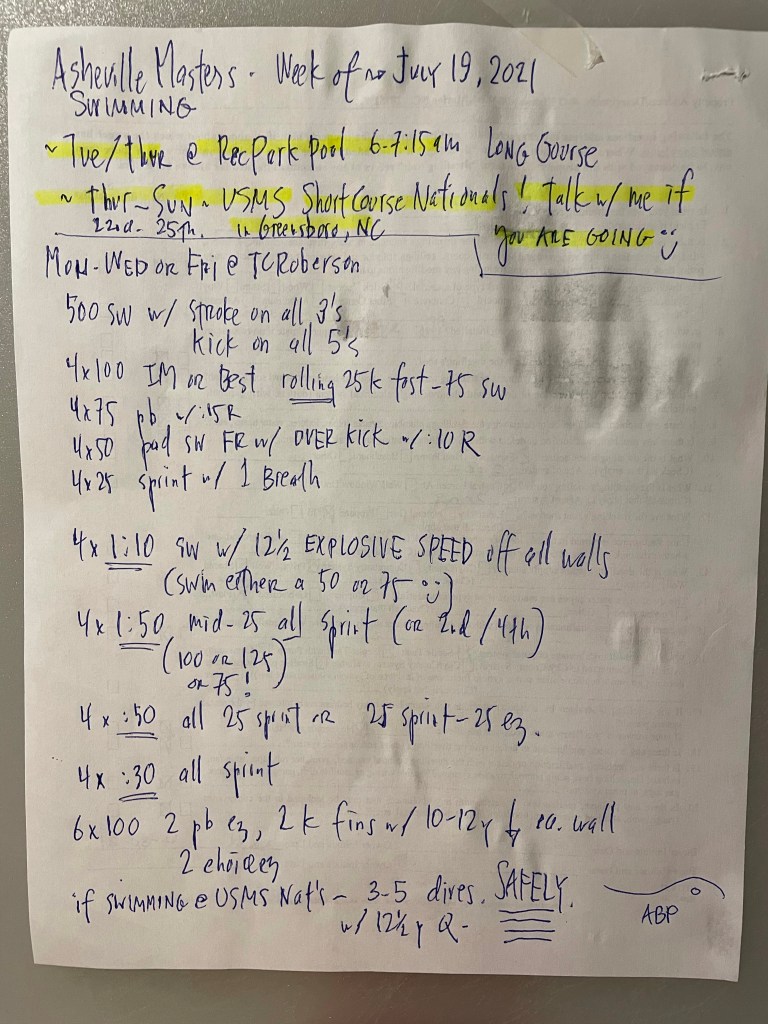 Asheville Masters - Week of ~ July 19, 2021
SWIMMING
~ Tue/Thur @ RecPark Pool 6-7:15am LONG Course
~ Thur - SUN ~ USMS Short Course Nationals! Talk w/ me if
22nd - 25th. in Greensboro, NC you ARE GOING
MON-WED OR FRI @ TCRoberson
500 SW w/ stroke on all 3's
kick on all 5's
4x100 IM or Best rolling 25k fast-75 sw
4x75 pb w/:15R
4x50 pad SW FR w/ OVER kick w/:10 R
4x25 sprint w/ 1 Breath
4x 1:10 SW w/ 12½ EXPLOSIVE SPEED off all walls
(swim either a 50 or 75 :))
4x 1:50 mid-25 all sprint (or 2nd/4th)
(100 or 125
or 75!)
4x :50 all 25 sprint or 25 sprint-25 ez.
4x :30 all sprint
6x100 2 pb ez, 2 k fins w/ 10-12y ↓ ea. wall
2 choice ez
if SWIMMING @ USMS Nat's - 3-5 dives. SAFELY.
w/ 12½ y Q-
ABP